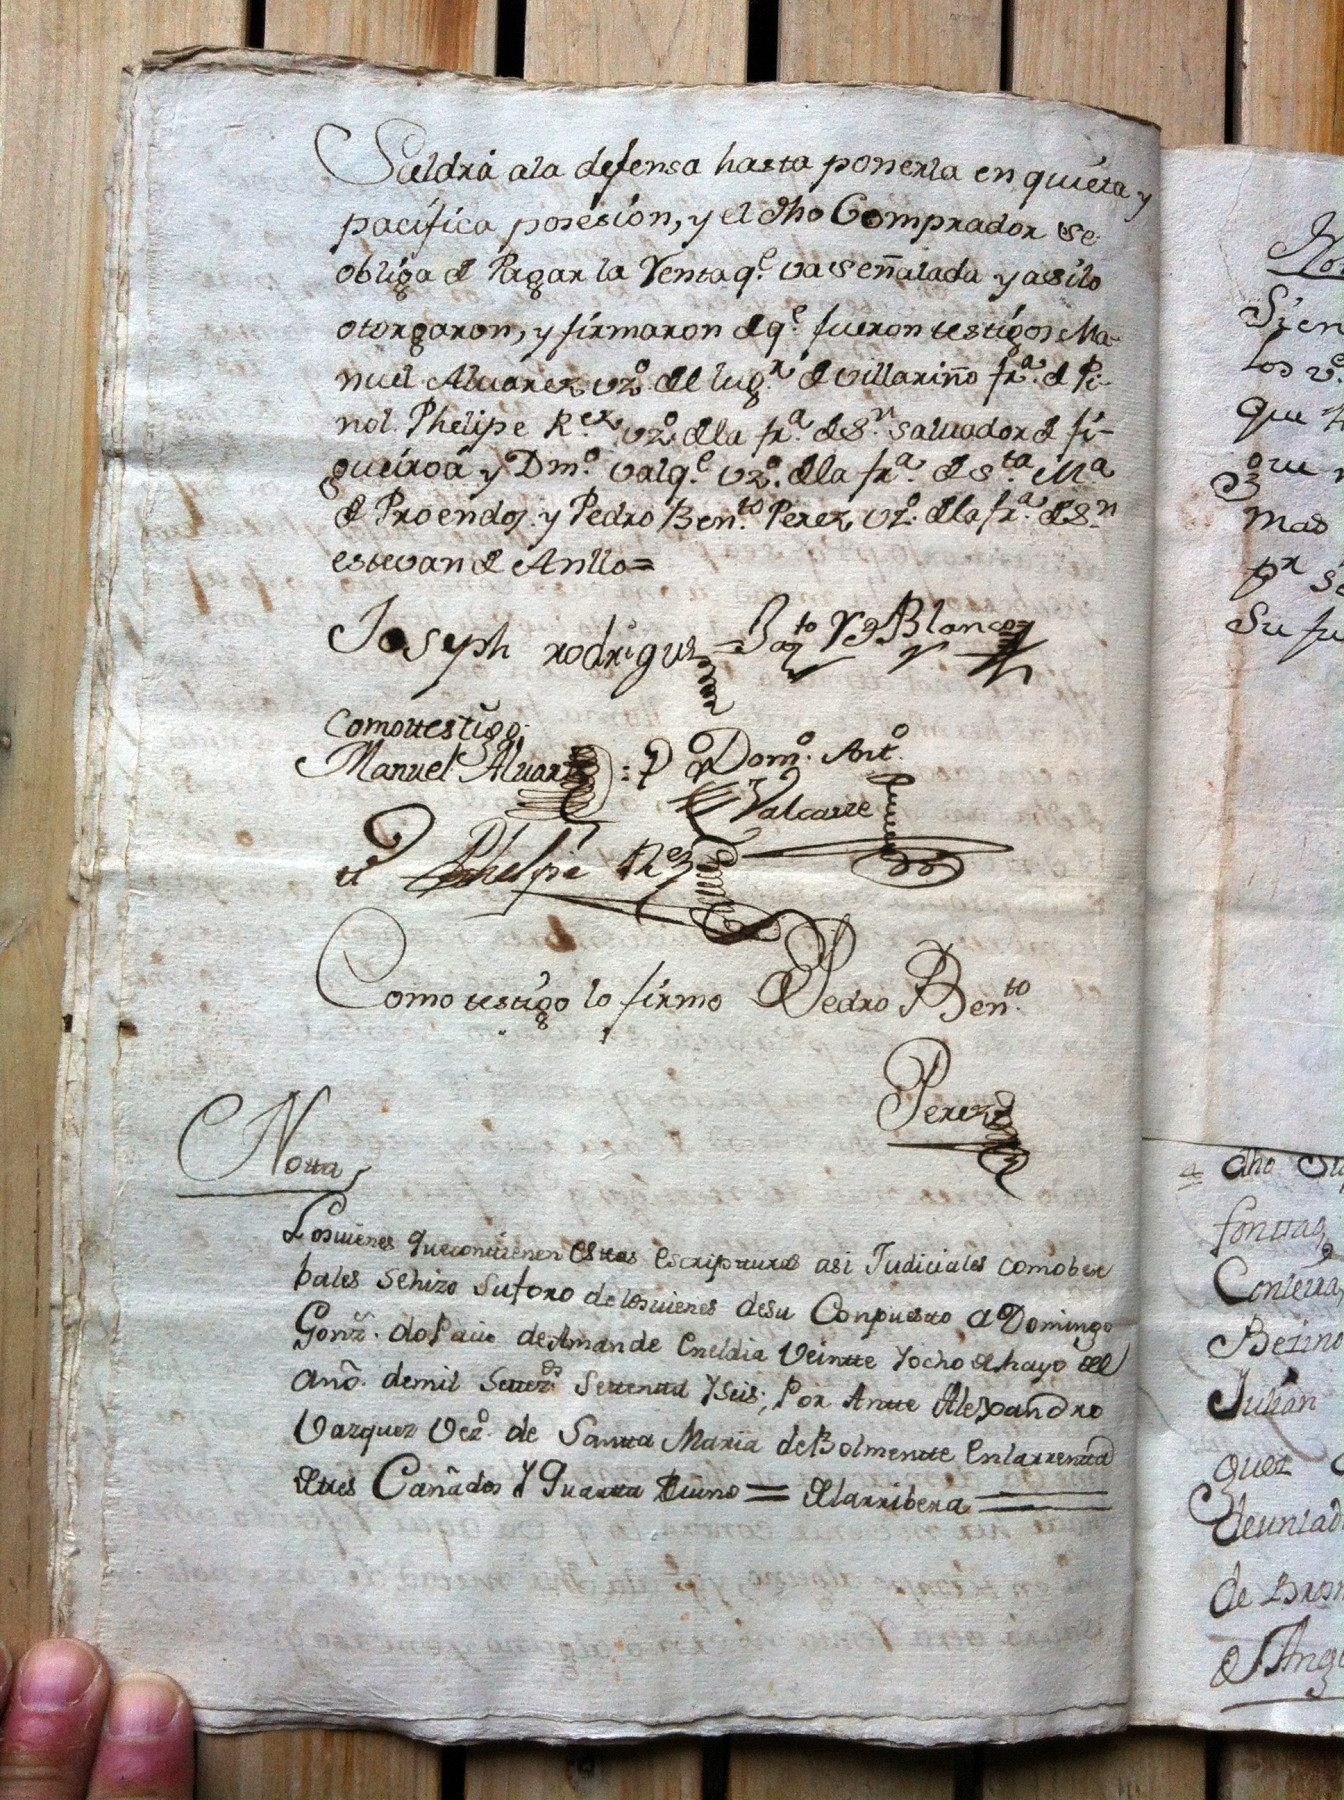 Saldrá ala defensa hasta ponerla en quieta y
pacifica posesion, y el dho Comprador se
obliga de Pagar la Renta q.e va señalada y asilo
otorgaron, y firmaron de q.e fueron testigos Ma-
nuel Alvarez vz.o del lug.r de villariño fr.a de Pi-
nol. Phelipe R.ez vz.o dela fr.a de S.n salvador de fi-
gueiroa y Dm.o valq.e vz.o dela fr.a de S.ta M.a
de Proendos. y Pedro Ben.to Perez vz.o dela fr.a de S.n
estevan de Anllo=
Joseph rodriguz = Blanco
Comottestigo
Manuel Alvarez = Dom.o Ant.o
Valcarze
Phelipe R.ez
Como testigo lo firmo Pedro Ben.to
Perez
Notta
Losvienes quecontienen esttas escriptturas asi Judiciales comober
bales sehizo suforo de losvienes desu Conpuestto a Domingo
Gonz. doPacio deAmande eneldia Veintte Yocho de mayo del
año. demil Settez.os Settentta Yseis, Por Antte Alexandro
Vazquez Vez.o de Santta Maria deBolmentte enlarrentta
dettres Cañados Y Quartta devino = delarribera =
Sien
los v.o
que
que
mas
Su fu
4 dho
fonttag
Julian
quez
de